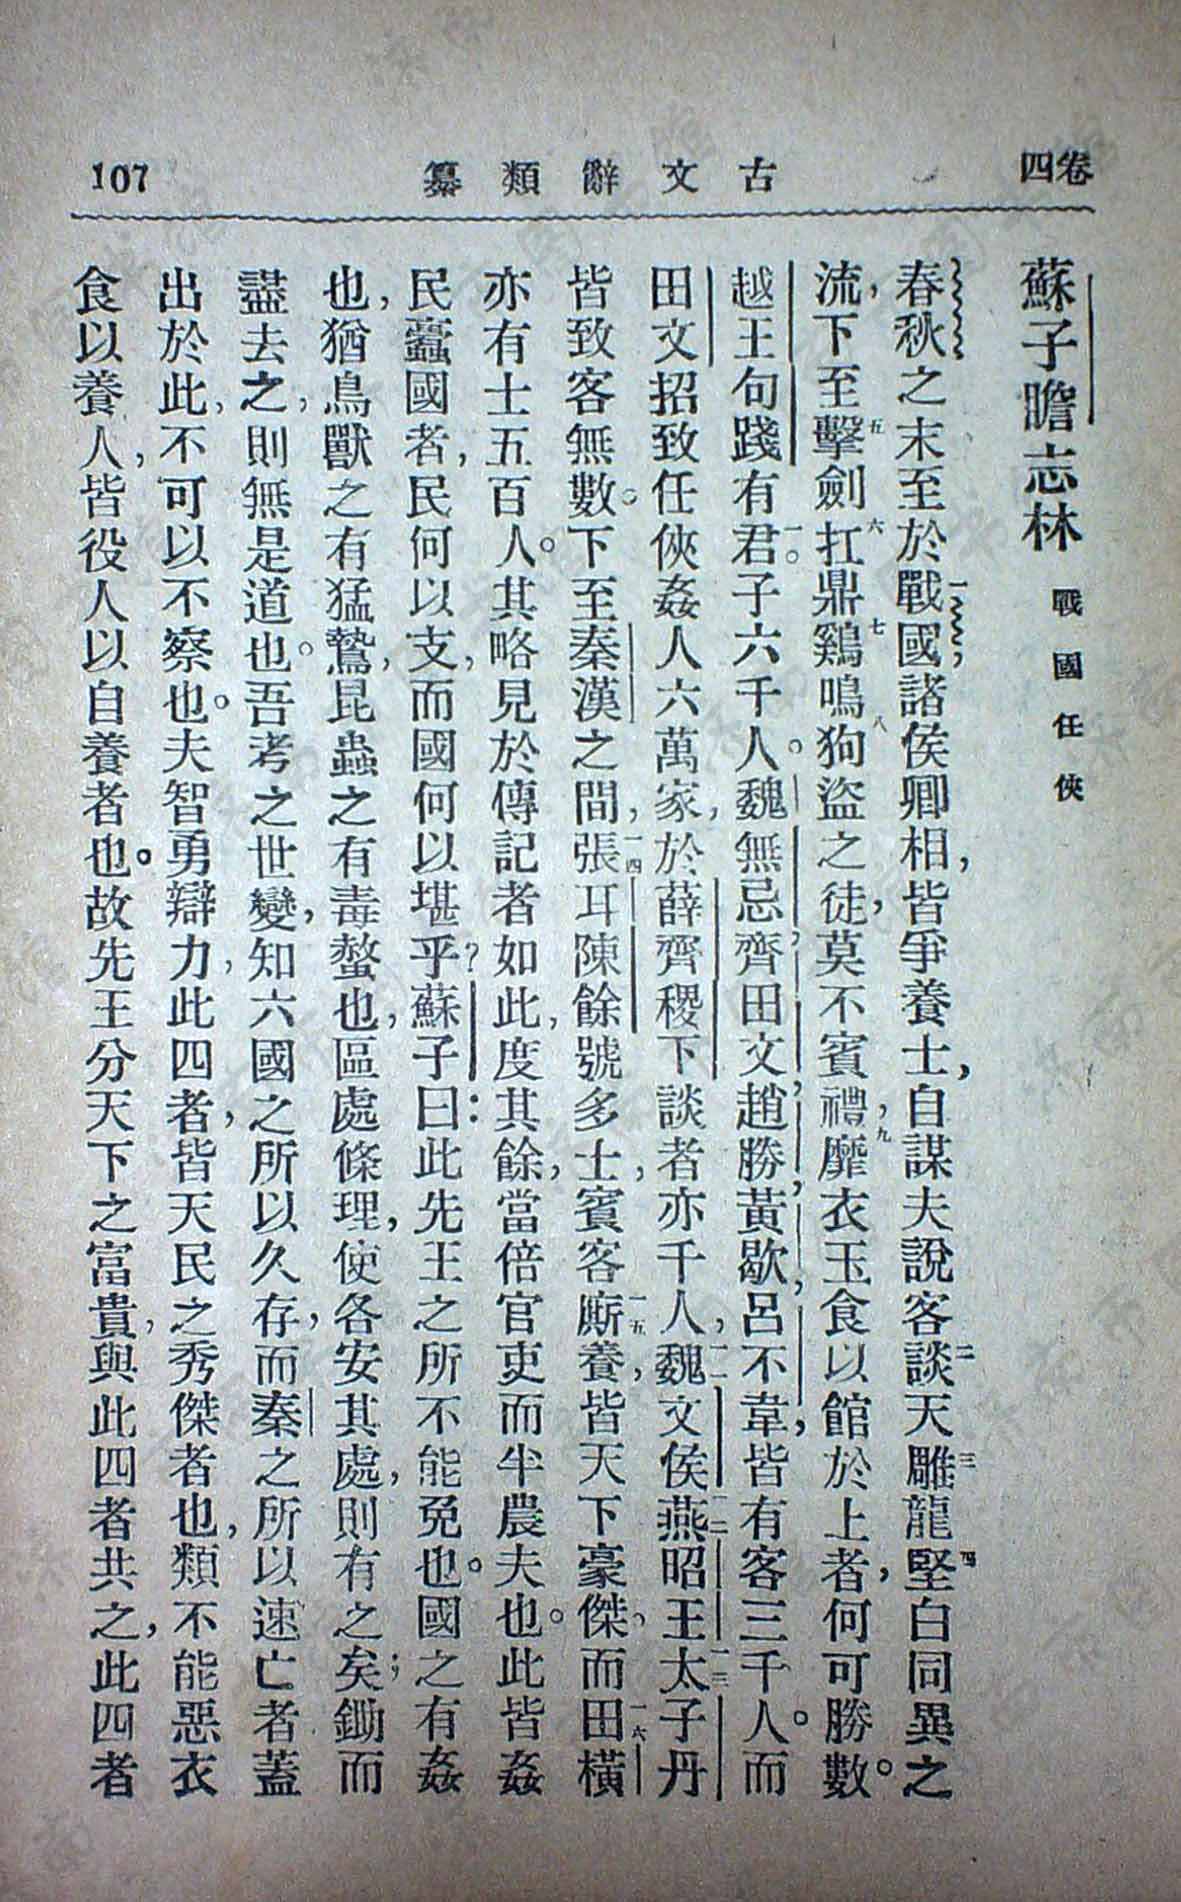 卷四
古文辭類纂
107
蘇子瞻志林 戰國任俠
春秋之末至於戰國,諸侯卿相,皆爭養士,自謀夫說客談天雕龍堅白同異之
流,下至擊劍扛鼎鷄鳴狗盜之徒,莫不賓禮,靡衣玉食以館於上者,何可勝數。
越王句踐有君子六千人。魏無忌,齊田文,趙勝,黃歇,呂不韋,皆有客三千人。而
田文招致任俠姦人六萬家,於薛齊稷下談者亦千人,魏文侯燕昭王太子丹
皆致客無數。下至秦漢之間,張耳陳餘號多士,賓客廝養,皆天下豪傑,而田橫
亦有士五百人。其略見於傳記者如此,度其餘,當倍官吏而半農夫也。此皆姦
民蠹國者,民何以支,而國何以堪乎?蘇子曰:此先王之所不能免也。國之有姦
也,猶鳥獸之有猛鷙,昆蟲之有毒螫也,區處條理,使各安其處,則有之矣;鋤而
盡去之,則無是道也。吾考之世變,知六國之所以久存,而秦之所以速亡者,蓋
出於此,不可以不察也。夫智勇辯力,此四者,皆天民之秀傑者也,類不能惡衣
食以養人,皆役人以自養者也。故先王分天下之富貴,與此四者共之,此四者